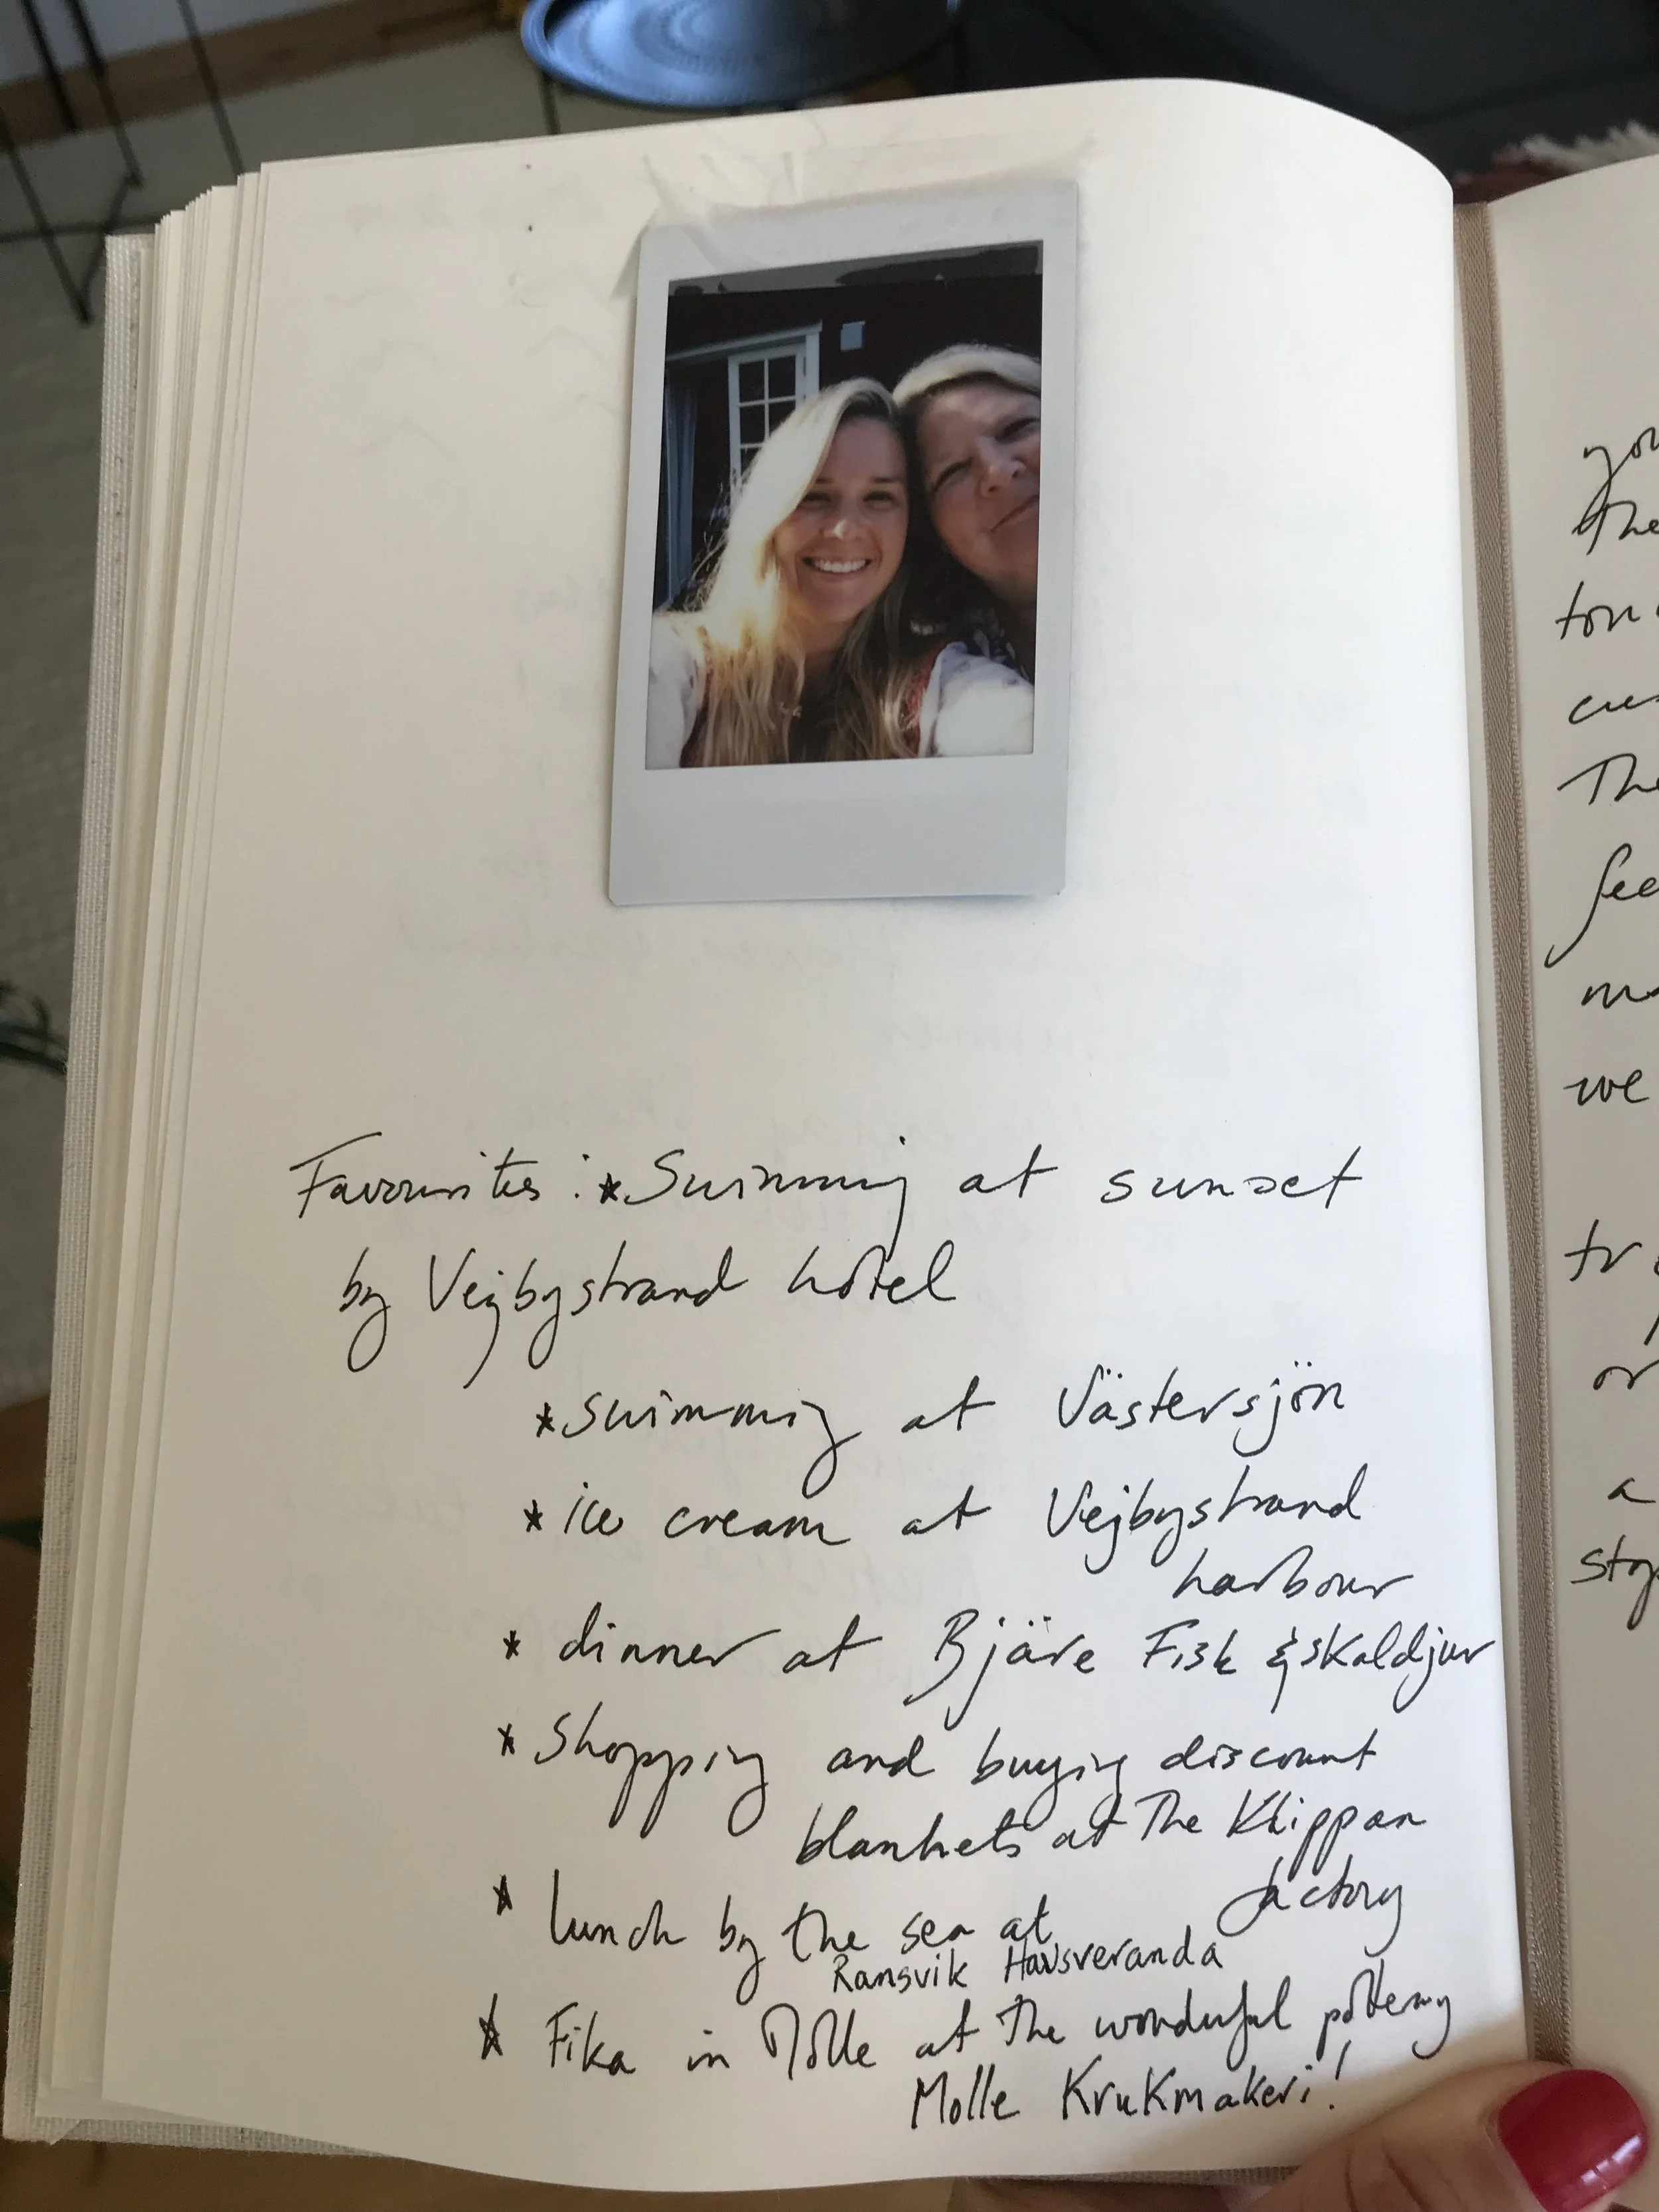 Favourites: *Swimming at sunset
by Vejbystrand hotel
*swimming at Västersjön
*ice cream at Vejbystrand
harbour
* dinner at Bjäre Fisk & skaldjur
* Shopping and buying discount
blankets at The Klippan
factory
* lunch by the sea at
Ransvik Havsveranda
* Fika in Mölle at the wonderful pottery
Molle Krukmakeri!
you
the
The
we
or
a